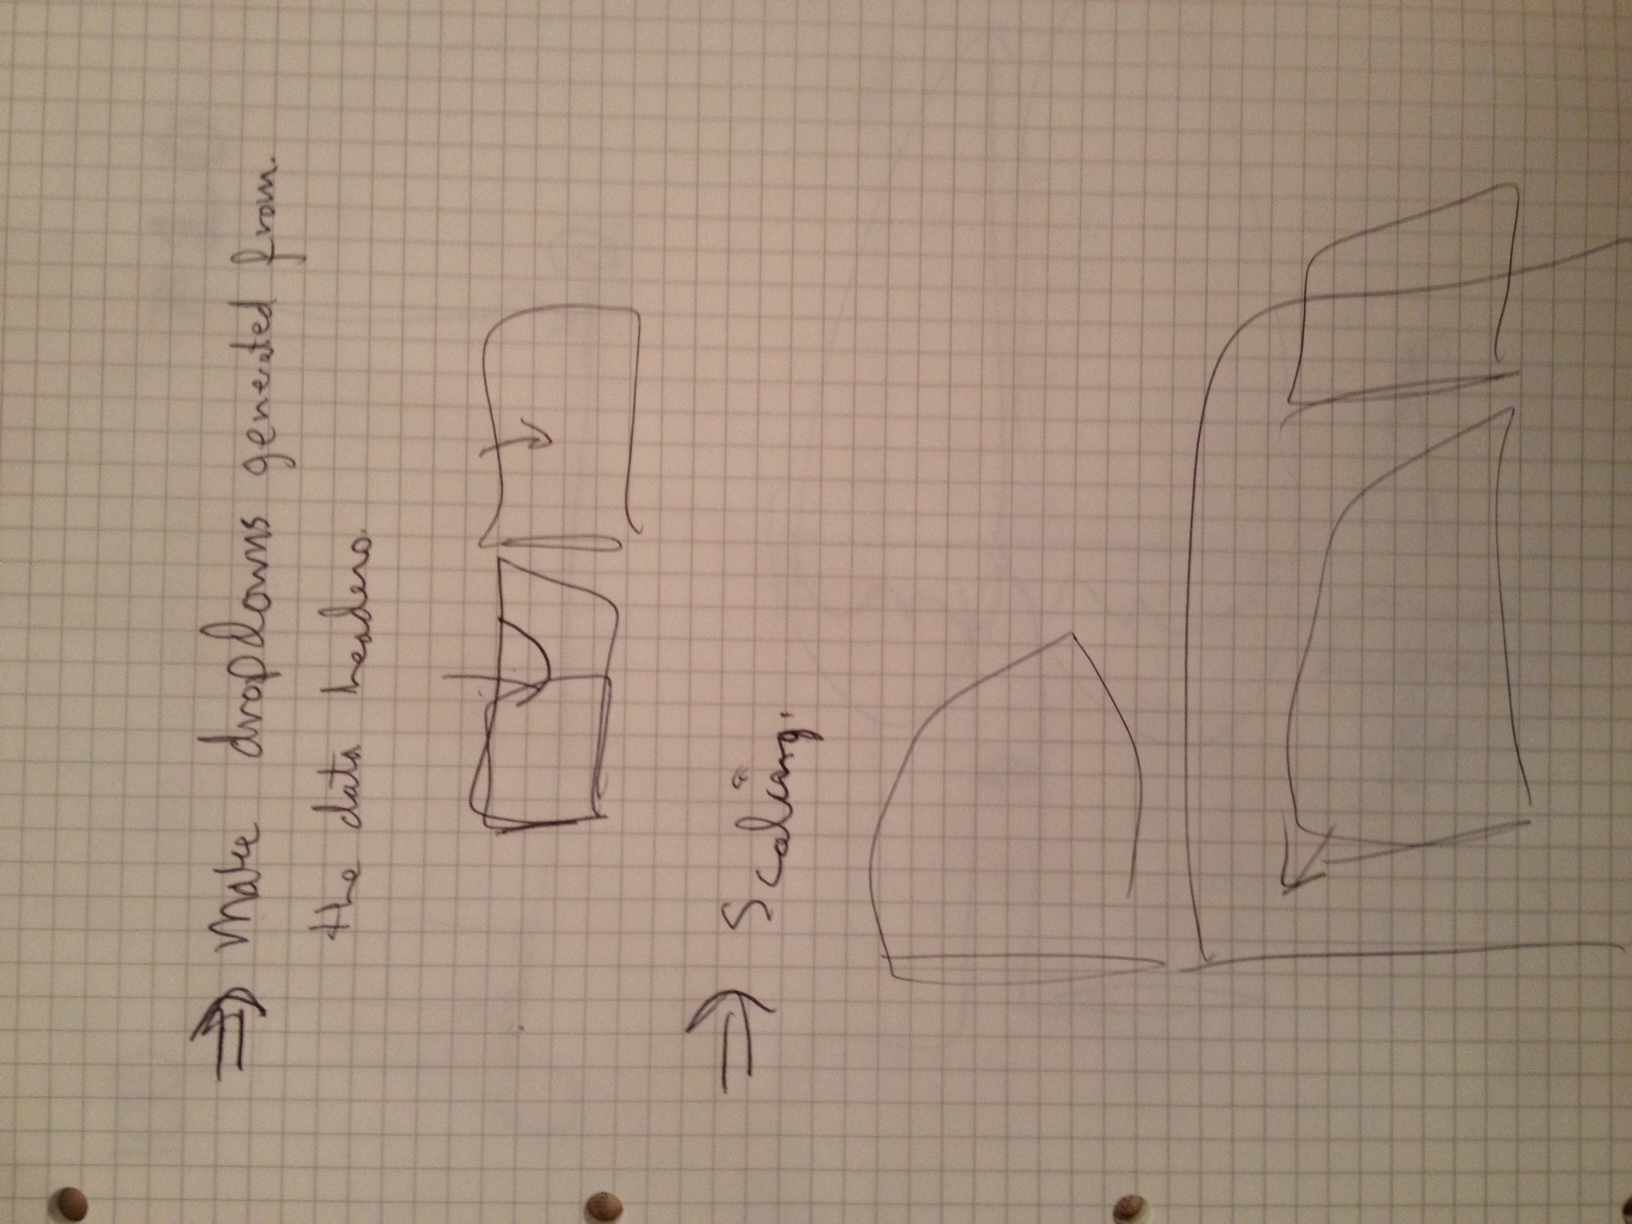 ⇒ Make dropdowns generated from.
the data headers.
⇒ Scaling.